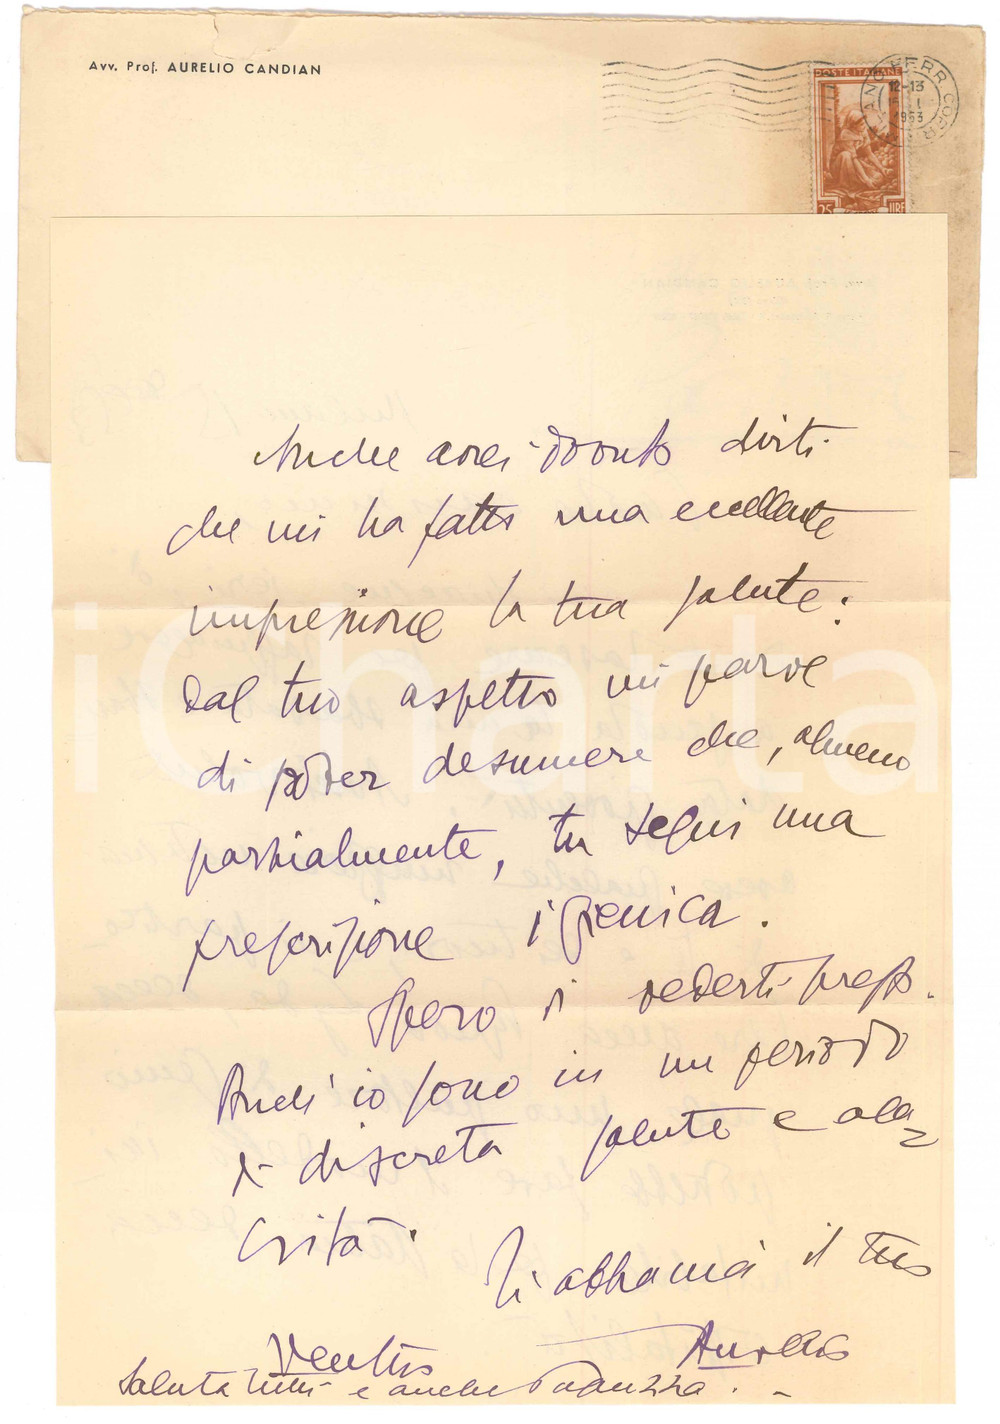 Avv. Prof. AURELIO CANDIAN
POSTE ITALIANE
12-13
1953
25 LIRE
Anche avrei dovuto dirti
che mi ha fatto una eccellente
impressione la tua salute:
dal tuo aspetto mi parve
di poter desumere che, almeno
parzialmente, tu segui una
prescrizione igienica.
Spero di vederti presto.
Anch'io sono in un periodo
di discreta salute e ala-
crità.
Ti abbraccia il tuo
Aurelio
Saluta tutti e anche
iCharta